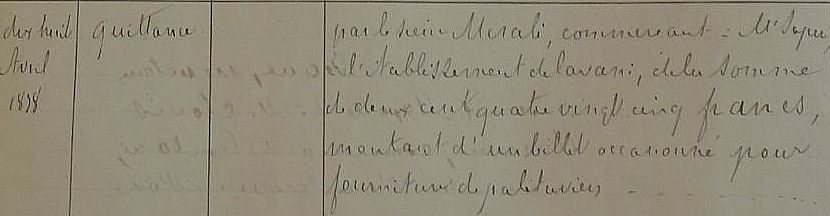 dix huit quittance par le sieur Morali, commercant : Mr
Avril l'établissement de Lavarani, de la somme
1898 de deux cent quatre vingt cinq francs,
montant d'un billet occasionné pour
fourniture de